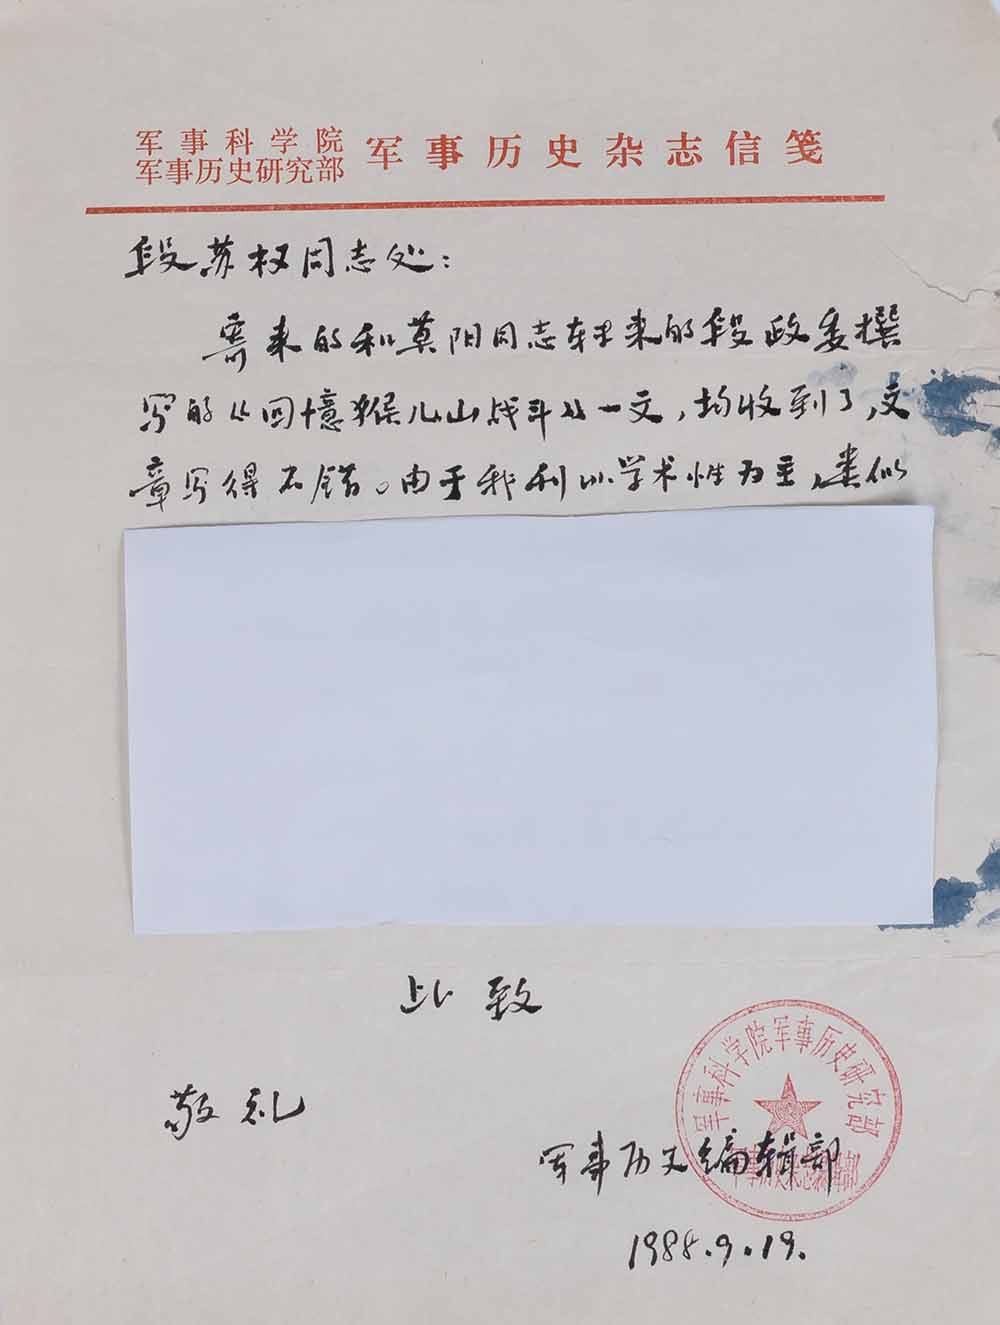 军事科学院
军事历史研究部
军事历史杂志信笺
段苏权同志处：
寄来的和莫阳同志转来的段政委撰
写的《回憶猴儿山战斗》一文，均收到了，文
章写得不错。由于我刊以学术性为主，类似
此致
敬礼
军事科学院军事历史研究部
军事历史杂志编辑部
军事历史编辑部
1988.9.19.